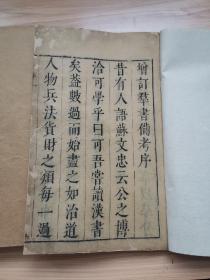 增訂羣書備考序
昔有人語蘇文忠云公之博
洽可學乎曰可吾嘗讀漢書
矣蓋數過而始盡之如治道
人物兵法貨財之類每一過